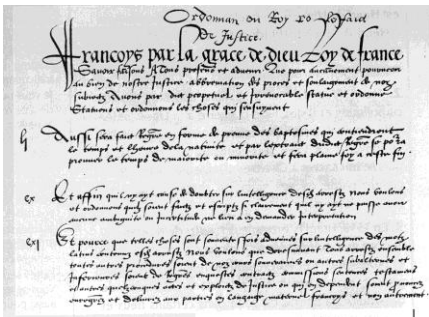 Ordonnan du Roy sur le faict
de Justice.
Francoys par la grace de dieu Roy de france
Scavoir faisons A tous presens et advenir Que pour aucunement pourveoir
au bien de nostre Justice abbreviation des proces et soulagement de noz
subiectz Avons par edict perpetuel et irrevocable statue et ordonne
Statuons et ordonnons les choses qui sensuyvent
lj Aussi sera faict Registre en forme de preuve des baptesmes qui contiendront
le temps et lheure de la nativite et par lextraict dudict Registre se pourra
prouver le temps de maiorite ou minorite et fera plaine foy a ceste fin
cx Et affin quil ny ayt cause de doubter sur lintelligence desdictz arrestz Nous voulons
et ordonnons quilz soient faictz et escriptz si clerement quil ny ayt ne puisse avoir
aucune ambiguite ou incertitude ne lieu a en demander interpretation
cxj Et pource que telles choses sont souvent advenues sur lintelligence des motz
latins contenuz esdictz arrestz Nous voulons que doresnavant Tous arrestz ensemble
toutes autres procedures soient de noz cours souveraines ou autres subalternes et
Inferieures soient de Registres enquestes contractz commissions sentences testamens
et autres quelzconques actes et exploictz de Justice ou qui en deppendent soient prononcez
enregistrez et delivrez aux parties en langage maternel francoys et non autrement